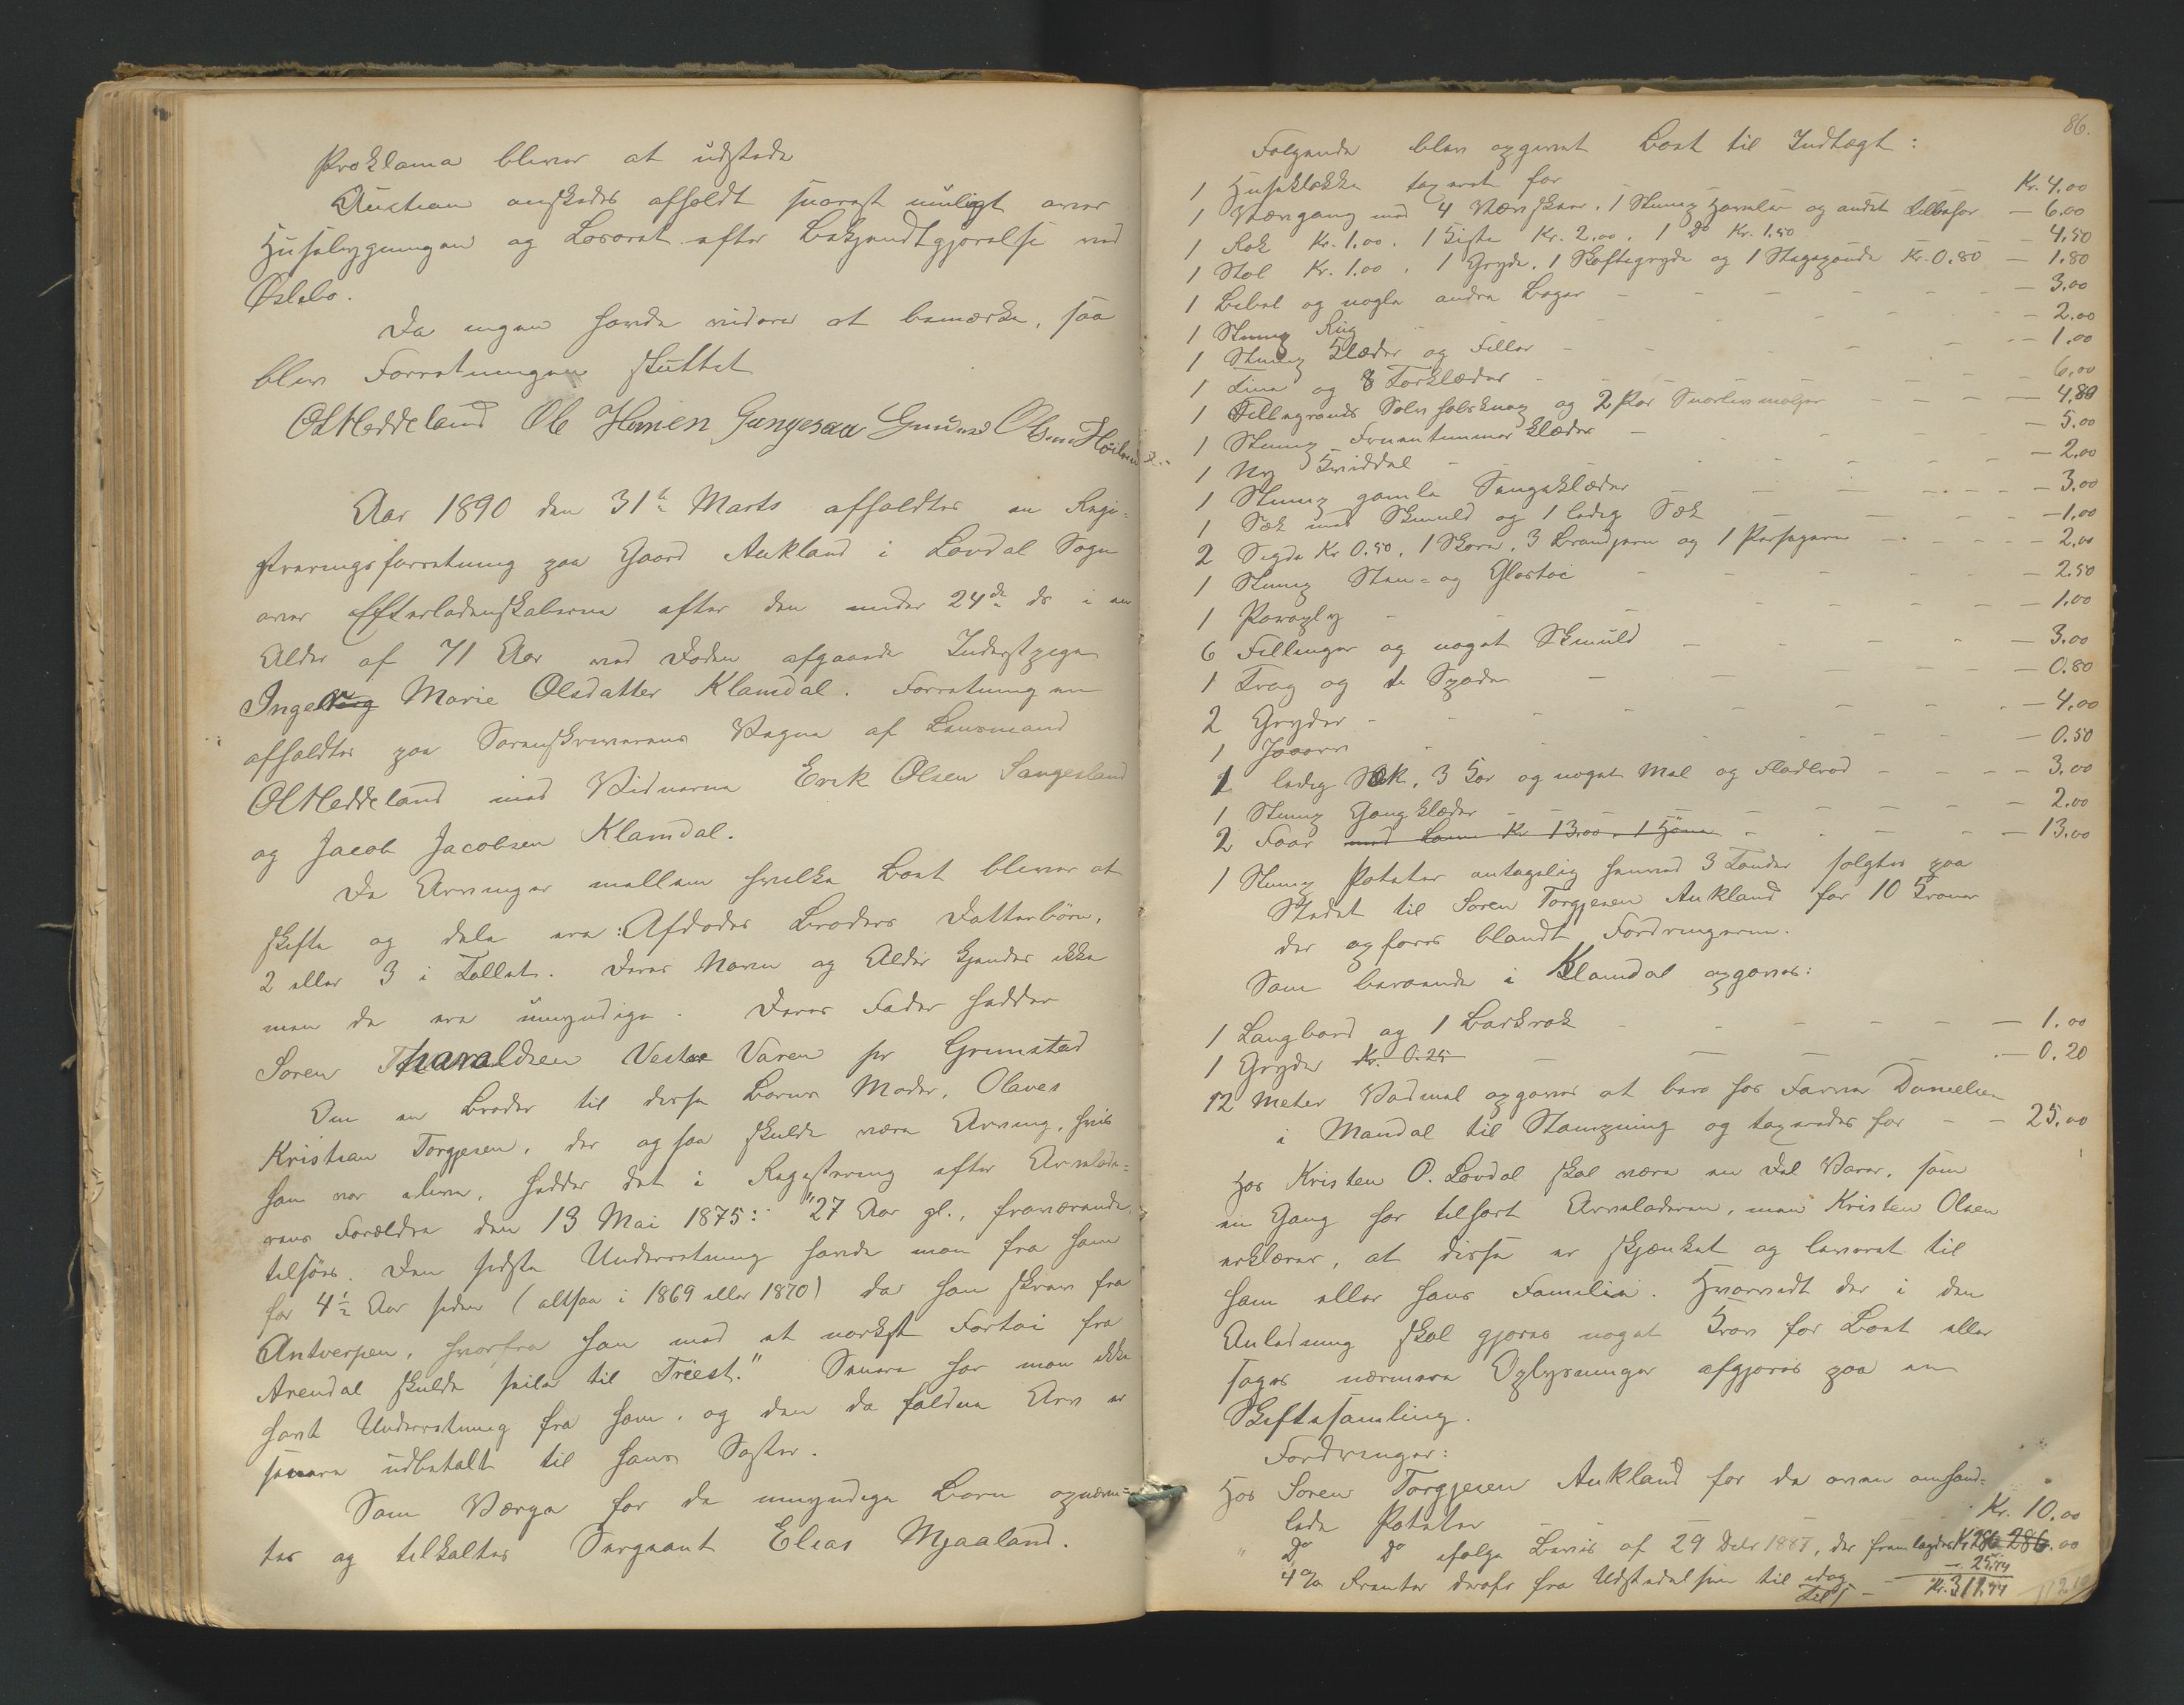 Proklama bliver at udstede
Auction onskedes afholdt snarest muligt over
Husebygningen og Losoret efter Bekjendtgjorelse ved
Øslebo.
Da ingen havde videre at bemærke, saa
blev Forretningen sluttet
OHeddeland Ole Hansen Gungesaa Gunder Olsen
Aar 1890 den 31te Marts afholdtes en Regi-
streringsforretning paa Gaard Aukland i Lovdal Sogn
over Efterladenskaberne efter den under 24de ds i en
Alder af 71 Aar ved Doden afgaaede Inderstpige
Ingeborg Marie Olsdatter Klamdal. Forretningen
afholdtes paa Sorenskriverens Vegne af Lensmand
OHeddeland med Vidnerne Erik Olsen Sangesland
og Jacob Jacobsen Klamdal.
De Arvinger mellem hvilke Boet bliver at
skifte og dele ere: Afdodes Broders Datterbörn,
2 eller 3 i Tallet. Deres Navn og Alder kjendes ikke
men de ere umyndige. Deres Fader hedder
Soren Tharaldsen Vestre Varen pr Grimstad
Om en Broder til disse Borns Moder, Olaves
Kristian Torgjesen, der ogsaa skulde være Arving, hvis
han var ilive, hedder det i Registrering efter Arvelade-
rens Forældre den 13 Mai 1875: "27 Aar gl., fraværende
tilsöes. Den sidste Underretning havde man fra ham
for 4½ Aar siden (altsaa i 1869 eller 1870) da han skrev fra
Antverpen, hvorfra han med et norskt Fartoi fra
Arendal skulde seile til Triest." Senere har man ikke
havt Underretning fra ham, og den da faldne Arv er
senere udbetalt til hans Soster.
Som Værge for de umyndige Born opnævn-
tes og tilkaldtes Sergeant Elias Mjaaland.
86.
Folgende blev opgivet Boet til Indtægt:
1 Huseklokke taxeret for Kr. 4.00
1 Vævgang med 4 Vævskeer, 1 Slump Haveler og andet Tilbehor — 6.00
1 Rok Kr. 1.00. 1 Kiste Kr. 2.00. 1 Do Kr. 1.50 — 4.50
1 Stol Kr. 1.00. 1 Gryde, 1 Skaftegryde og 1 Stegepande Kr. 0.80 — 1.80
1 Bibel og nogle andre Boger — 3.00
1 Slump Rug — 2.00
1 Slump Klæder og Filler — 1.00
1 Line og 8 Torklæder — 6.00
1 Fillegrands Solv halsknap og 2 Par Snorlivmaljer — 4.80
1 Slump Fruentimmer Klæder — 5.00
1 Ny Kviddel — 2.00
1 Slump gamle Sengeklæder — 3.00
1 Sæk med Skmuld og 1 ledig Sæk — 1.00
2 Segde Kr 0.50, 1 Skovo, 3 Brandjern og 1 Persejern — 2.00
1 Slump Sten- og Glastoi — 2.50
1 Paraply — 1.00
6 Fillinger og noget Skmuld — 3.00
1 Trog og 1 Spade — 0.80
2 Gryder — 4.00
1 — 0.50
1 ledig Sæk, 3 Kar og noget Mel og Fladbrod — 3.00
1 Slump Gangklæder — 2.00
2 Faar med Lam Kr 13.00. 1 Höne — 13.00
1 Slump Poteter antagelig henved 3 Tonder solgtes paa
Stedet til Soren Torgjesen Aukland for 10 Kroner
der opfores blandt Fordringerne.
Som beroende i Klamdal opgaves:
1 Langbord og 1 Barkrok — 1.00
1 Gryder Kr. 0.25 — 0.20
12 Meter Vadmel opgaves at bero hos Farver Danielsen
i Mandal til Stampning og taxeredes for — 25.00
Hos Kristen O. Lovdal skal være en Del Varer, som
en Gang har tilhort Arveladeren, men Kristen Olsen
erklærer, at disse er skjænket og leveret til
ham eller hans Familie. Hvorvidt der i den
Anledning skal gjores noget Krav for Boet eller
tages nærmere Oplysninger afgjores paa en
Skiftesamling.
Fordringer:
Hos Soren Torgjesen Aukland for de oven omhand-
lede Poteter Kr. 10.00
" Do Do ifolge Bevis af 29 Debr 1887, der fremlagdes Kr 286.00
4% Renter deraf fra Udstedelsen til idag — 25.74
Tils — Kr. 311.74